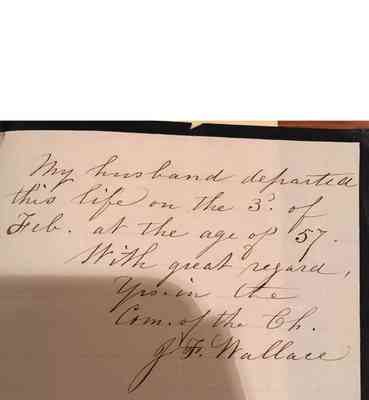 My husband departed
this life on the 3d. of
Feb. at the age of 57.
With great regard,
Yrs. in the
Com. of the Ch.
J. F. Wallace